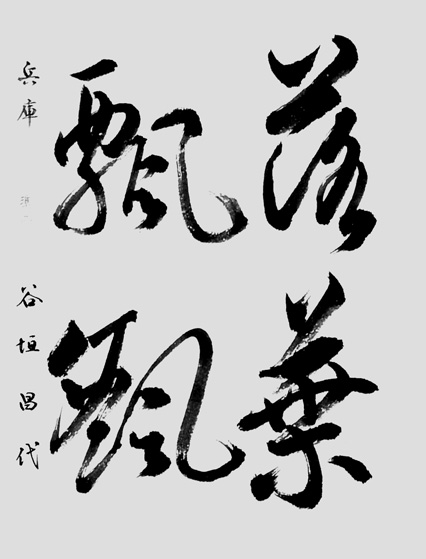 落葉
飄颻
兵庫 谷垣昌代